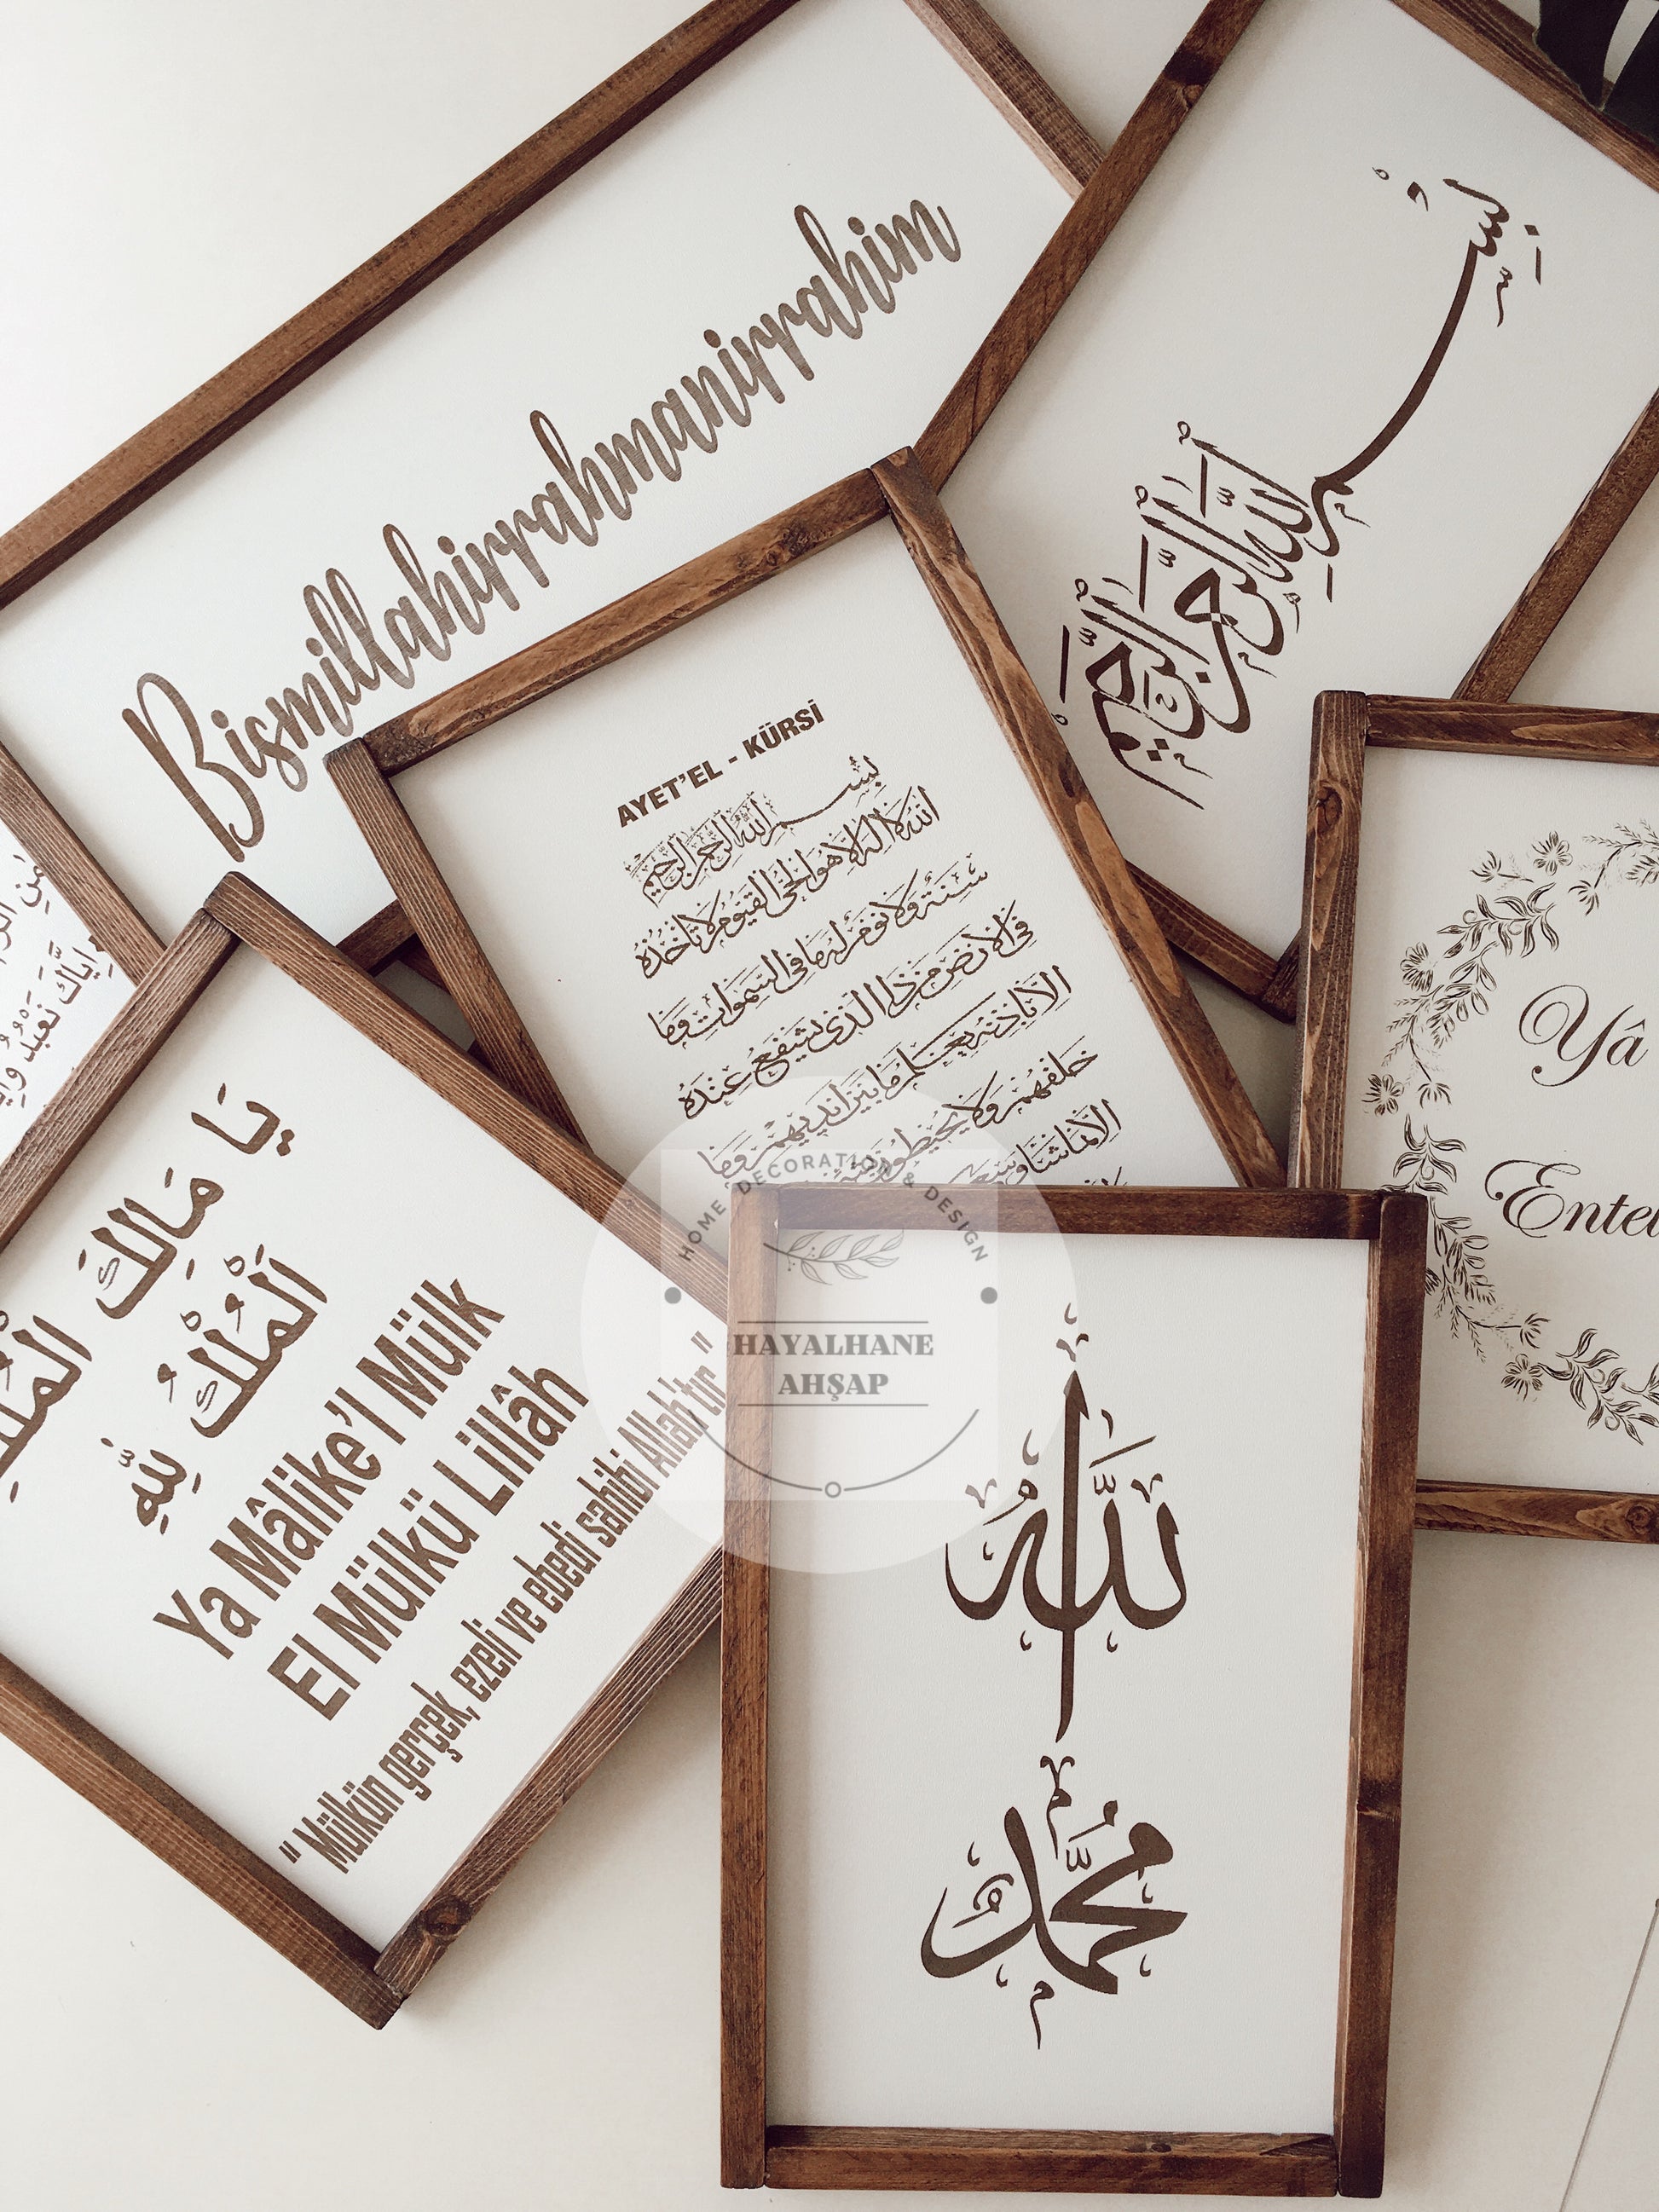 Bismillahirrahmanirrahim
بِسْمِ اللّٰهِ الرَّحْمٰنِ الرَّحِيمِ
AYET'EL - KÜRSİ
بسم الله الرحمن الرحيم
الله لا اله الا هو الحي القيوم لا تأخذه
سنة ولا نوم له ما في السموات وما
في الارض من ذا الذي يشفع عنده
الا باذنه يعلم ما بين ايديهم وما
خلفهم ولا يحيطون
الا بما شاء وسع
اِيَّاكَ نَعْبُدُ
Yâ
يَا مَالِكَ الْمُلْكِ
اَلْمُلْكُ لِلّٰهِ
Ya Mâlike'l Mülk
El Mülkü Lillâh
" Mülkün gerçek, ezeli ve ebedi sahibi Allah'tır "
HOME DECORATION & DESIGN
HAYALHANE
AHŞAP
الله
محمد